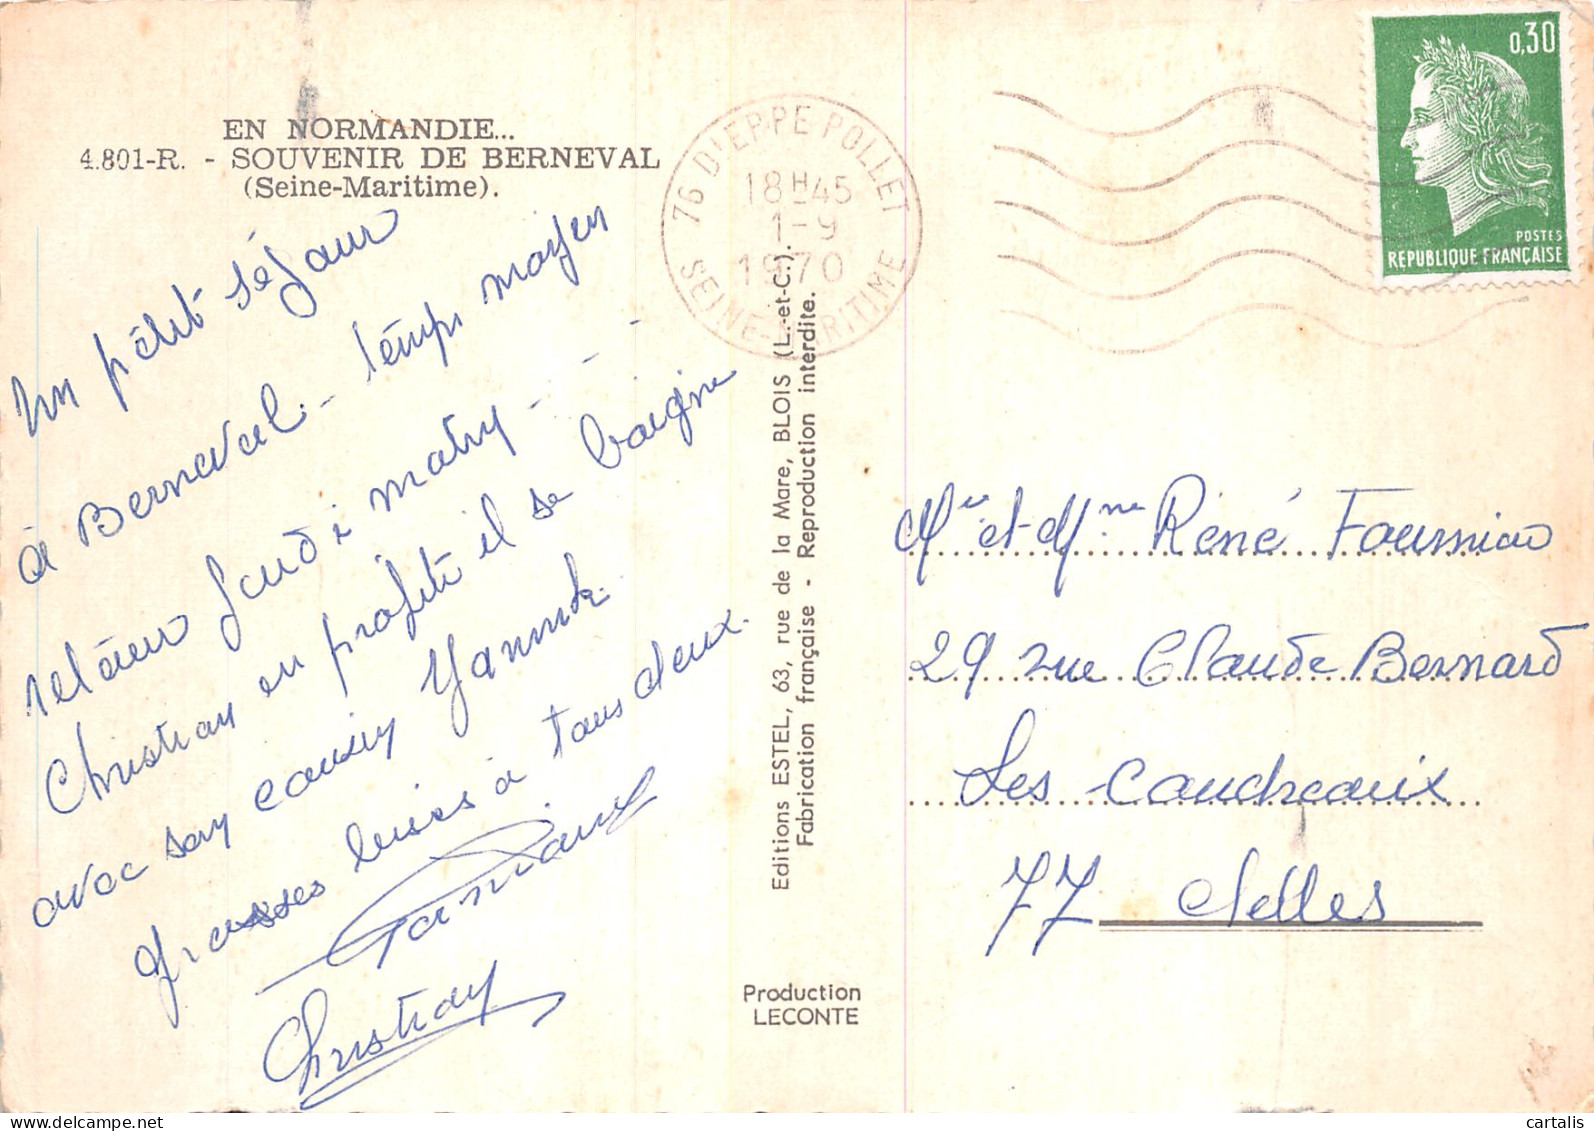 EN NORMANDIE...
4.801-R. - SOUVENIR DE BERNEVAL
(Seine-Maritime).
Un petit séjour
à Berneval - temps moyen
retour jeudi matin -
Christian en profite il se baigne
avec son cousin Yannick
grosses bises à tous deux.
Christian
76 DIEPPE POLLET
18H45
1-9
1970
SEINE-MARITIME
Editions ESTEL, 63, rue de la Mare, BLOIS (L.-et-C.).
Fabrication française - Reproduction interdite.
Production
LECONTE
0,30
POSTES
REPUBLIQUE FRANÇAISE
Mr et Mme René Fournion
29 rue Claude Bernard
Les Coudreaux
77 Chelles
cartalis